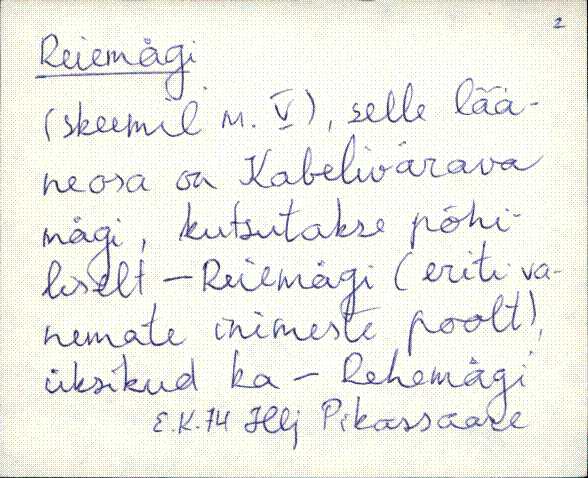 2
Reiemägi
(skeemil m. V), selle lää-
neosa on Kabelivärava
mägi, kutsutakse põhi-
liselt – Reiemägi (eriti va-
nemate inimeste poolt),
üksikud ka – Rehemägi
E.K.74 Hlj Pikassaare